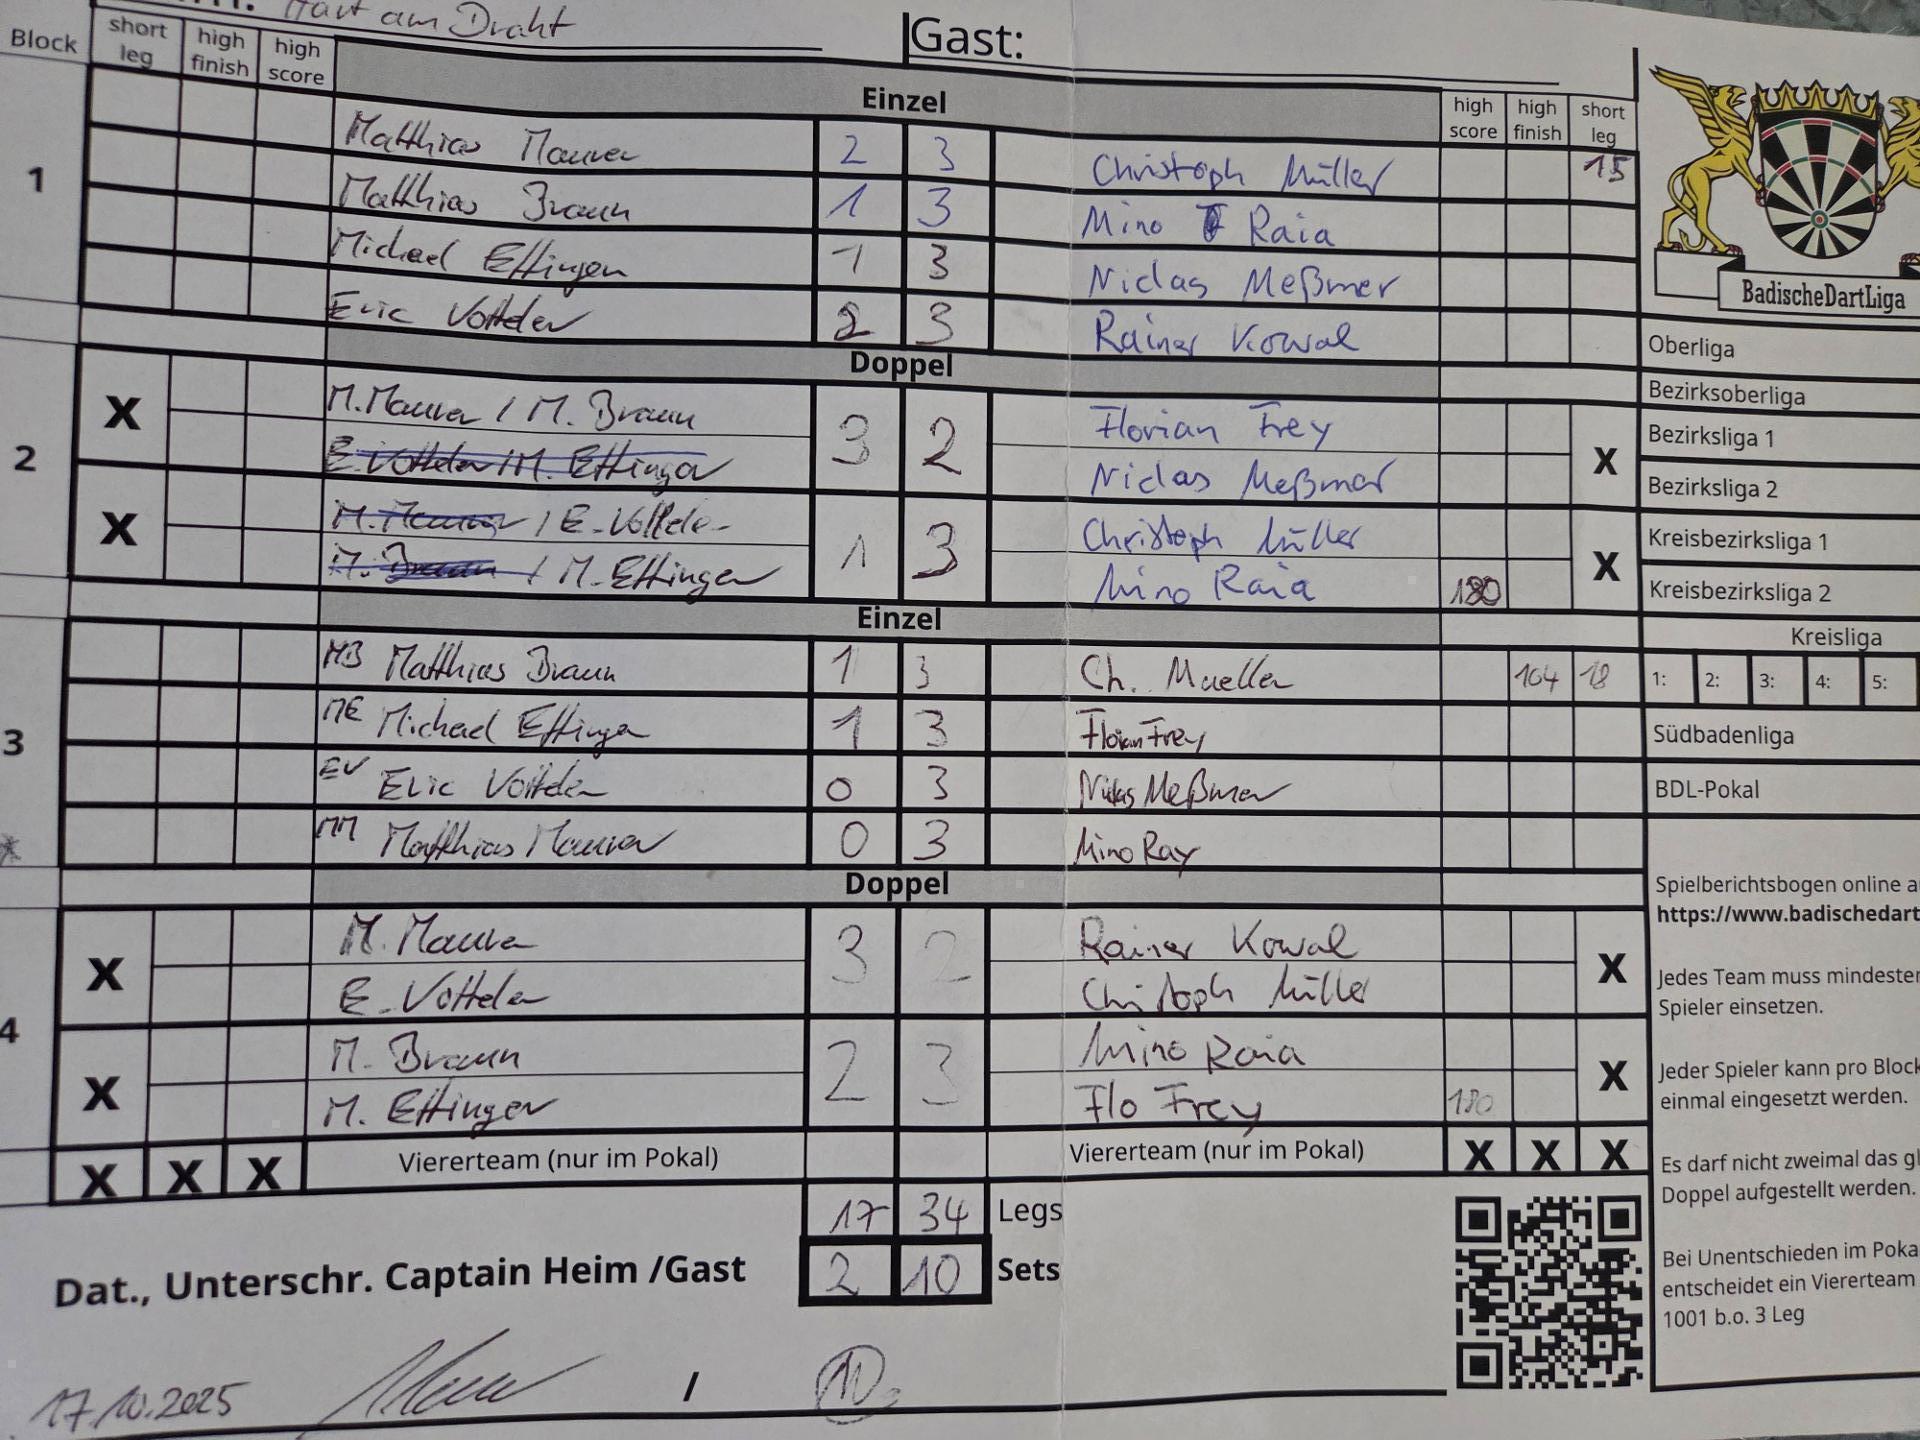 Hart am Draht
Gast:
Block
short leg
high finish
high score
Einzel
high score
high finish
short leg
1
Matthias Maurer 2 3 Christoph Müller 15
Matthias Braun 1 3 Mino Raia
Michael Effinger 1 3 Niclas Meßmer
Eric Vötteler 2 3 Rainer Kowal
Doppel
2
X
M. Maurer / M. Braun 3 2 Florian Frey
E. Vötteler / M. Effinger Niclas Meßmer
X
X
M. Maurer / E. Vötteler 1 3 Christoph Müller
M. Braun / M. Effinger Mino Raia 180
X
Einzel
3
MB Matthias Braun 1 3 Ch. Mueller 104 18
ME Michael Effinger 1 3 Florian Frey
EV Eric Vötteler 0 3 Niclas Meßmer
MM Matthias Maurer 0 3 Mino Ray
Doppel
4
X
M. Maurer 3 2 Rainer Kowal
E. Vötteler Christoph Müller
X
X
M. Braun 2 3 Mino Raia
M. Effinger Flo Frey 180
X
X X X Viererteam (nur im Pokal) Viererteam (nur im Pokal) X X X
17 34 Legs
2 10 Sets
Dat., Unterschr. Captain Heim /Gast
17.10.2025 /
BadischeDartLiga
Oberliga
Bezirksoberliga
Bezirksliga 1
Bezirksliga 2
Kreisbezirksliga 1
Kreisbezirksliga 2
Kreisliga
1: 2: 3: 4: 5:
Südbadenliga
BDL-Pokal
Spielberichtsbogen online
https://www.badischedart
Jedes Team muss mindesten
Spieler einsetzen.
Jeder Spieler kann pro Block
einmal eingesetzt werden.
Es darf nicht zweimal das gl
Doppel aufgestellt werden.
Bei Unentschieden im Poka
entscheidet ein Viererteam
1001 b.o. 3 Leg